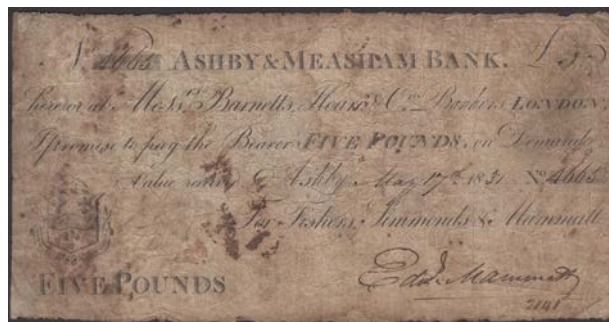 No. 4665 ASHBY & MEASHAM BANK. £5
here or at Messrs. Barnetts, Hoare & Co. Bankers LONDON,
I promise to pay the Bearer FIVE POUNDS, on Demand
Value recd. Ashby May 17th 1831 No. 4665
For Fishers, Simmonds & Mammatt
FIVE POUNDS
Edwd. Mammatt
2141